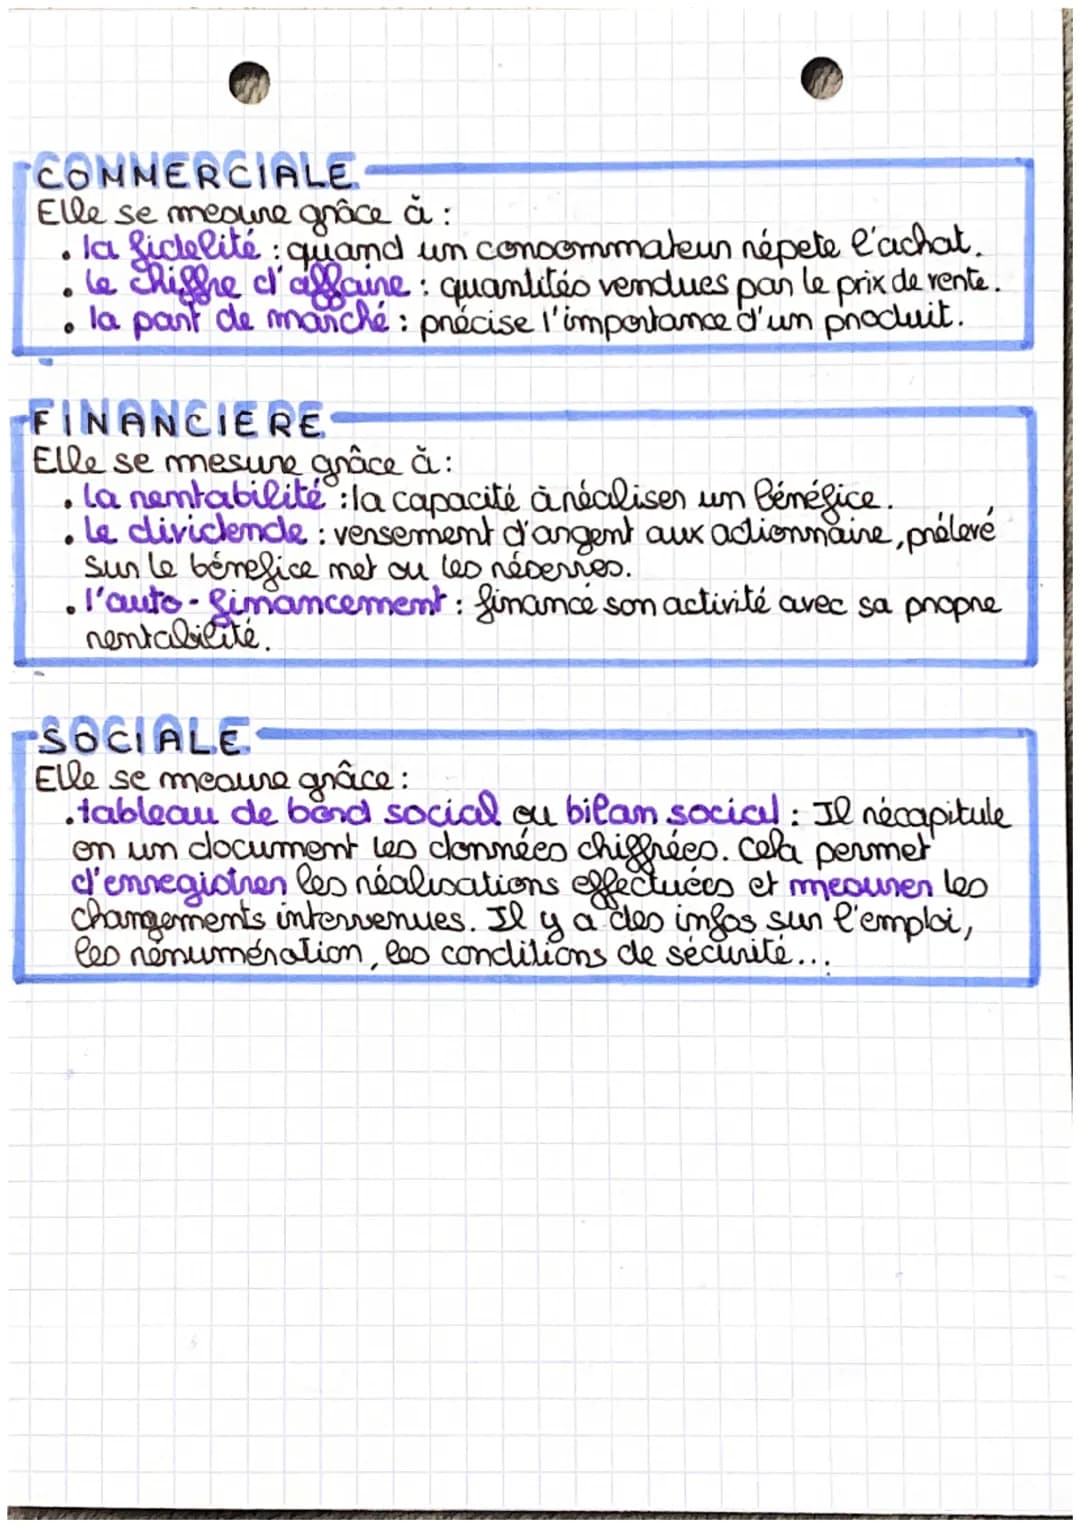 COMMERCIALE
Elle se mesure grâce à :
• la fidelité : quand un consommateur répete l'achat.
• le chiffre d'affaire : quantités vendues par le prix de vente.
• la part de marché : précise l'importance d'un produit.
FINANCIERE
Elle se mesure grâce à :
• la rentabilité : la capacité à réaliser un bénéfice.
• le dividende : versement d'argent aux actionnaire, prélevé
sur le bénefice net ou les réserves.
• l'auto-financement : financé son activité avec sa propre
rentabilité.
SOCIALE
Elle se mesure grâce :
• tableau de bord social ou bilan social : Il récapitule
en un document les données chiffrées. Cela permet
d'enregistrer les réalisations effectuées et mesurer les
changements intervenues. Il y a des infos sur l'emploi,
les rénumération, les conditions de sécurité...